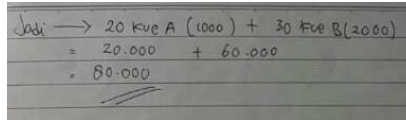 Jadi → 20 kue A (1000) + 30 kue B (2000)
= 20.000 + 60.000
= 80.000